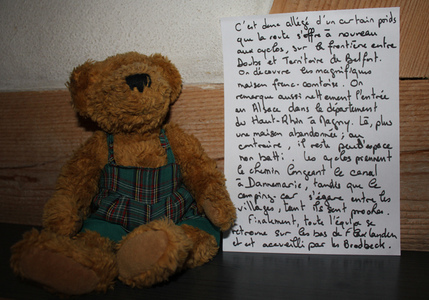 C'est donc allégé d'un certain poids
que la route s'offre à nouveau
aux cyclos, sur la frontière entre
Doubs et Territoire de Belfort.
On découvre les magnifiques
maison franc-comtoise. On
remarque aussi nettement l'entrée
en Alsace dans le département
du Haut-Rhin à Magny. Là, plus
une maison abandonnée ; au
contraire, il reste peu d'espace
non batti. Les cyclos prennent
le chemin longeant le canal
à Dannemarie, tandis que le
camping car s'égare entre les
villages, tant ils sont proches.
Finalement, toute l'équipe se
retrouve sur les bas de
et est accueilli par les Brodbeck.